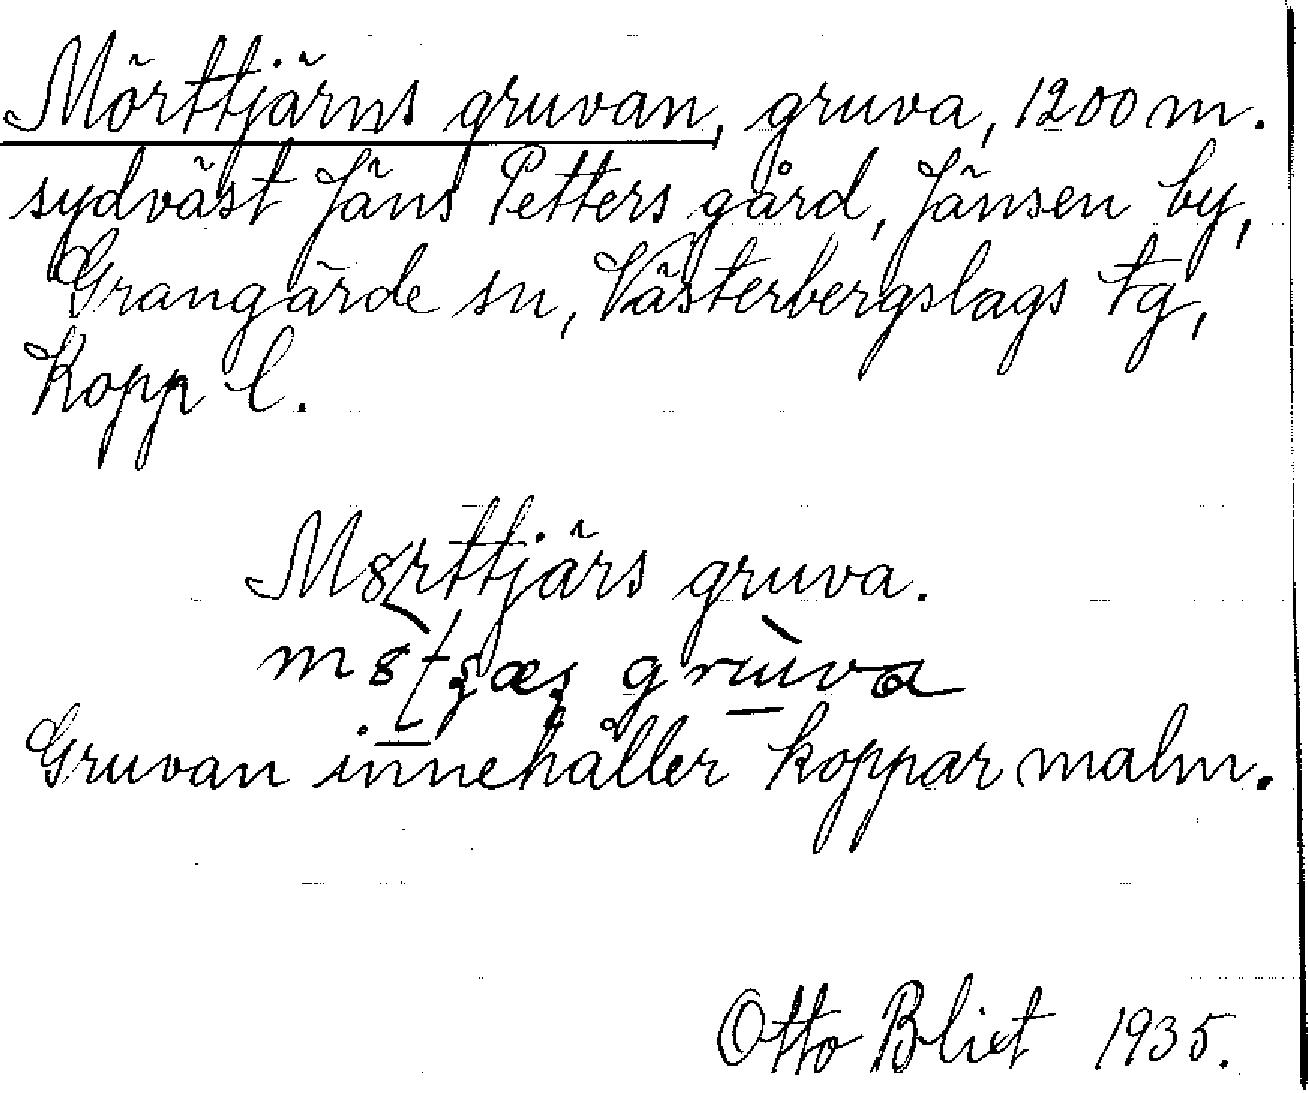 Mörttjärns gruvan, gruva, 1200 m.
sydväst Jäns Petters gård, Jänsen by,
Grangärde sn, Västerbergslags tg,
Kopp l.
Mörttjärs gruva.
gruva
Gruvan innehåller koppar malm.
Otto Blixt 1935.